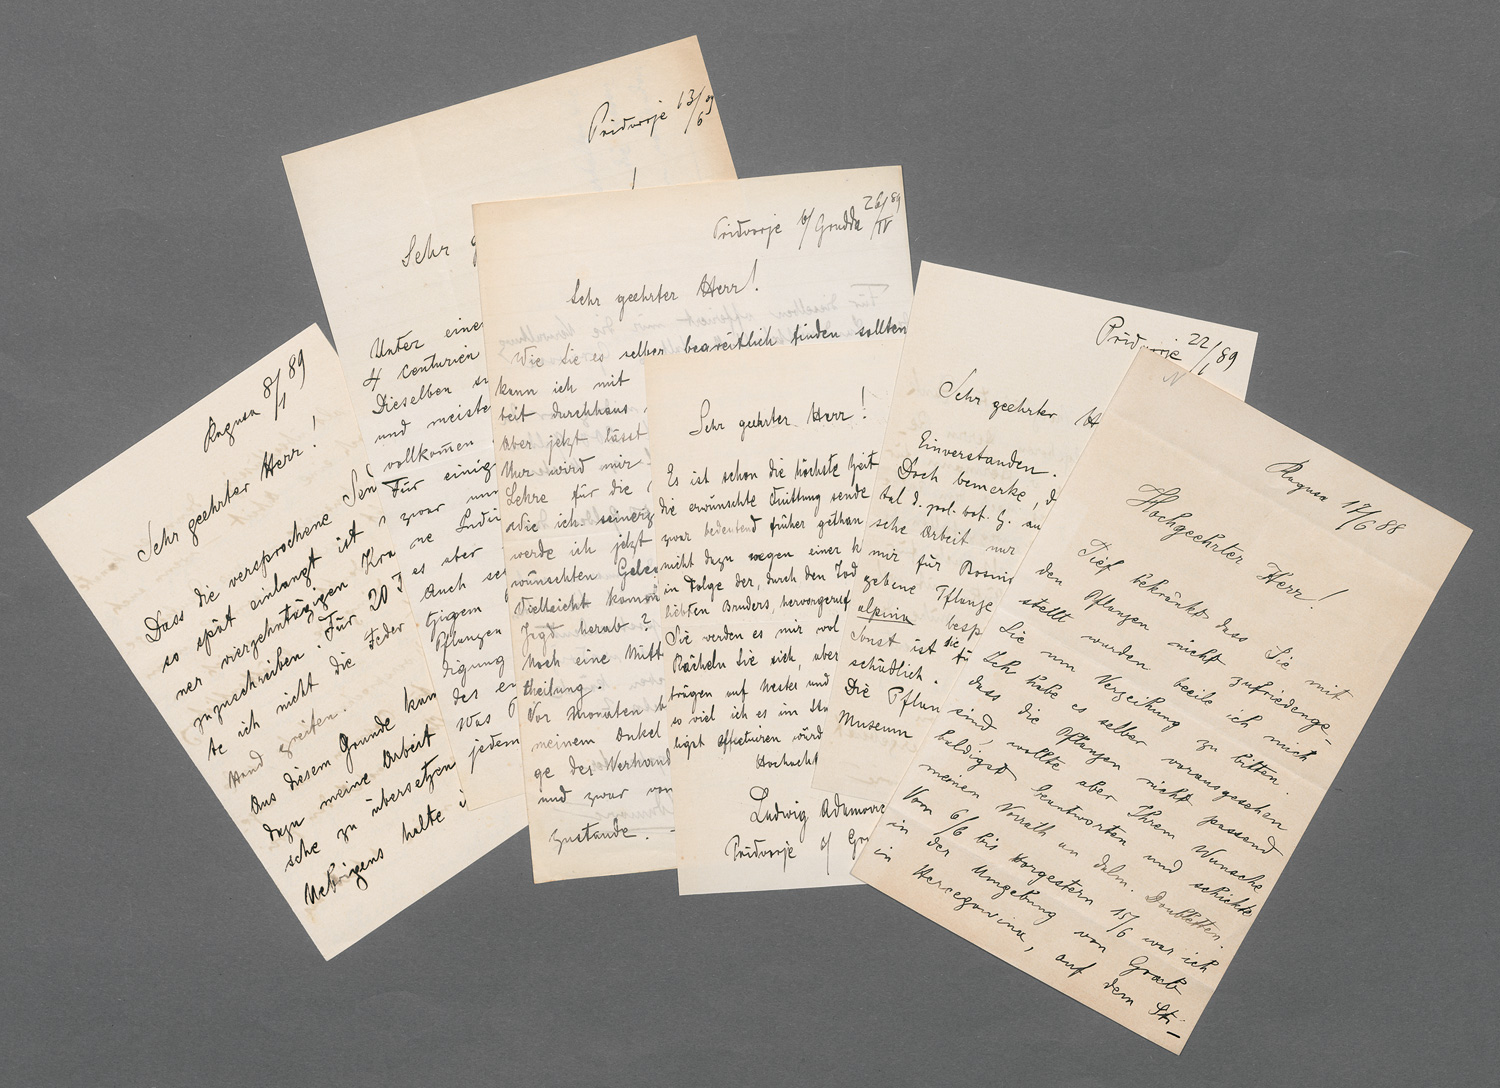 Ragusa 8/1 89
Sehr geehrter Herr!
Dass die versprochene Sen
so spät einlangt ist
ner vierzehntägigen Kra
zuzuschreiben. Für 20 T
te ich nicht die Feder
Hand greifen.
Aus diesem Grunde kan
dazu meine Arbeit
sche zu übersetzen
Uebrigens halte i
Pridvorje 13/6 89
Sehr g
Unter eine
4 Centurien
Dieselben s
und meiste
vollkom̄en
Für einig
zwar un
ne Indi
es aber
Auch se
tigem
Pflanzen
digung
des e
was
jedem
Pridvorje b/ Grudda 26/IV 89
Sehr geehrter Herr!
Wie Sie es selber begreiflich finden sollten
kann ich mit
beit durchhaus
Aber jetzt lässt
Nur wird mir
Lehre für die
Wie ich seinerz
werde ich jetzt
wünschten Gele
Vielleicht kom̄en
Jagd herab?
Noch eine Mitt
theilung.
Vor Monaten k
meinem Onkel
ge des Verhand
und zwar von
zustande.
Sehr geehrter Herr!
Es ist schon die höchste Zeit
die erwünschte Quittung sende
zwar bedeutend früher gethan
nicht dazu wegen einer k
in Folge der, durch den Tod
liebten Bruders, hervorgeruf
Sie werden es mir wol
Rächeln Sie sich, aber
trägen auf Nester und
so viel ich es im Sta
ligst effectuiren würd
Hochacht
Ludwig Adamovic
Pridvorje b/ Gr
Pridvorje 22/ 89
Sehr geehrter H
Einverstanden.
Doch bemerke, d
tal d. pol. bot. G. an
sche Arbeit nur
mir für Bosni
gebene Pflanze
alpina besp
Sonst ist die fü
schädlich.
Die Pflan
Museum
Ragusa 17/6 88
Hochgeehrter Herr!
Tief bekränkt dass Sie mit
den Pflanzen nicht zufriedenge-
stellt wurden beeile ich mich
Sie um Verzeihung zu bitten.
Ich habe es selber vorausgesehen
dass die Pflanzen nicht passend
sind, wollte aber Ihrem Wunsche
baldigst beantworten und schickte
meinen Vorrath an dalm. Doubletten.
Vom 6/6 bis vorgestern 15/6 war ich
in der Umgebung von Grab
in Hercegowina, auf dem Sti-